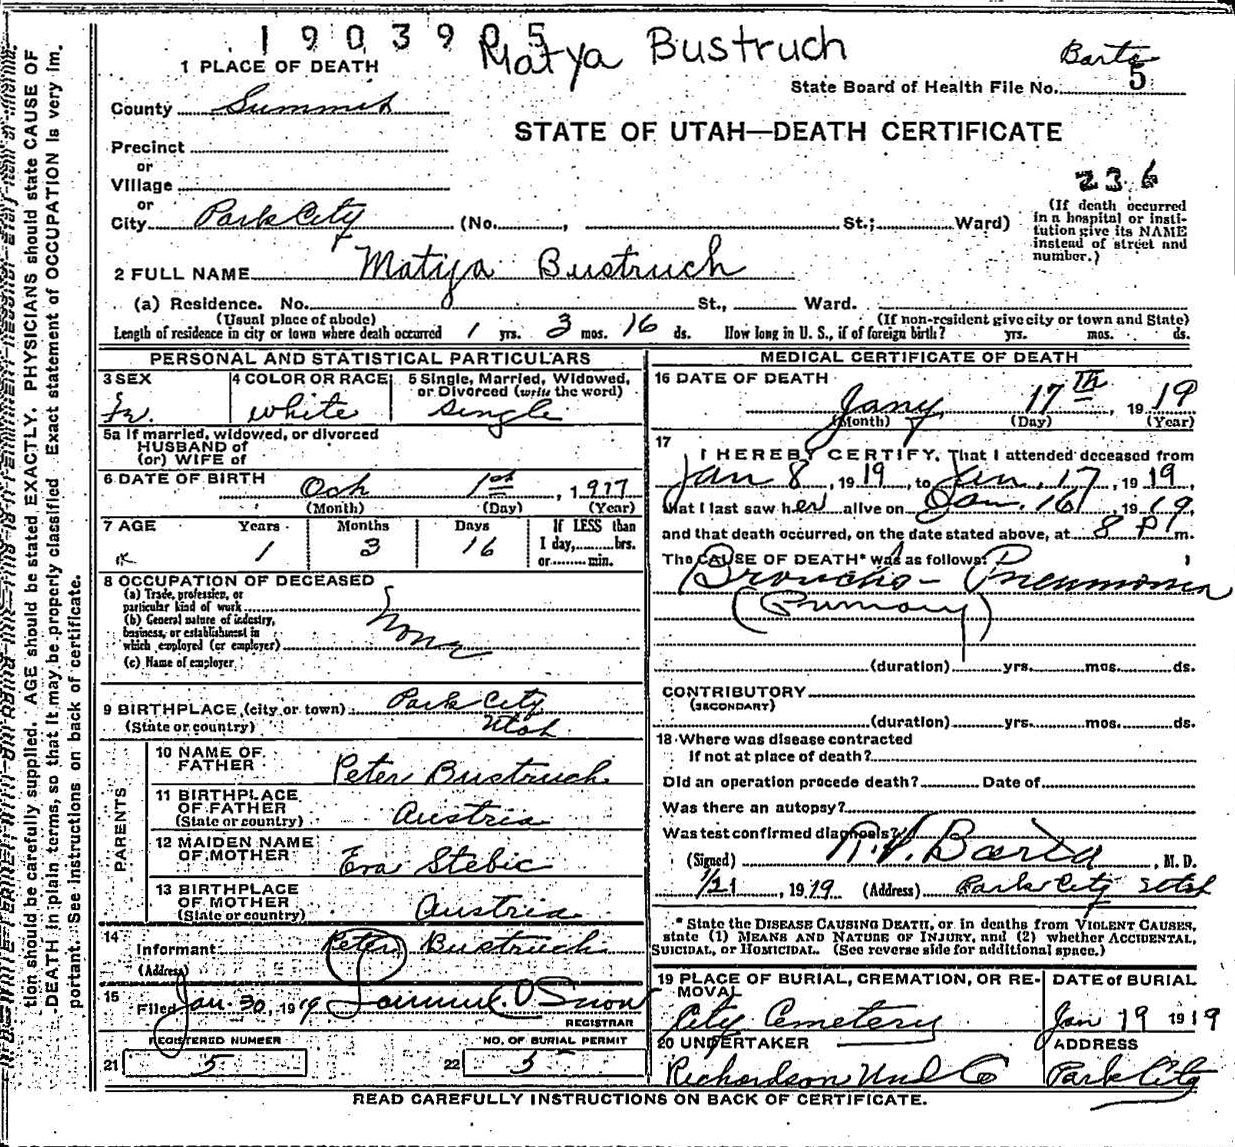 1903905 Matya Bustruch
1 PLACE OF DEATH
State Board of Health File No. 5
County Summit
STATE OF UTAH—DEATH CERTIFICATE
Precinct
or
Village
236
or
City Park City (No. , St.; Ward)
(If death occurred
in a hospital or insti-
tution give its NAME
instead of street and
number.)
2 FULL NAME Matija Bustruch
(a) Residence. No. St., Ward.
(Usual place of abode) (If non-resident give city or town and State)
Length of residence in city or town where death occurred 1 yrs. 3 mos. 16 ds. How long in U. S., if of foreign birth? yrs. mos. ds.
PERSONAL AND STATISTICAL PARTICULARS
3 SEX 4 COLOR OR RACE 5 Single, Married, Widowed,
or Divorced (write the word)
white single
5a If married, widowed, or divorced
HUSBAND of
(or) WIFE of
6 DATE OF BIRTH
Oct 1st, 1917
(Month) (Day) (Year)
7 AGE Years Months Days If LESS than
1 3 16 1 day, hrs.
or min.
8 OCCUPATION OF DECEASED
(a) Trade, profession, or
particular kind of work
(b) General nature of industry,
business, or establishment in
which employed (or employer) none
(c) Name of employer
9 BIRTHPLACE (city or town) Park City
(State or country) Utah
PARENTS
10 NAME OF
FATHER Peter Bustruch
11 BIRTHPLACE
OF FATHER
(State or country) Austria
12 MAIDEN NAME
OF MOTHER Eva Stebic
13 BIRTHPLACE
OF MOTHER
(State or country) Austria
14
Informant Peter Bustruch
(Address)
15
Filed Jan. 30, 1919 Snow
REGISTRAR
REGISTERED NUMBER NO. OF BURIAL PERMIT
21 5 22 5
MEDICAL CERTIFICATE OF DEATH
16 DATE OF DEATH
Jany. 17th, 1919
(Month) (Day) (Year)
17
I HEREBY CERTIFY, That I attended deceased from
Jan 8, 1919, to Jan. 17, 1919,
that I last saw her alive on Jan. 16, 1919,
and that death occurred, on the date stated above, at 8 P m.
The CAUSE OF DEATH* was as follows:
Broncho-Pneumonia
(Primary)
(duration) yrs. mos. ds.
CONTRIBUTORY
(SECONDARY)
(duration) yrs. mos. ds.
18 Where was disease contracted
If not at place of death?
Did an operation precede death? Date of
Was there an autopsy?
Was test confirmed diagnosis?
(Signed) Barta, M. D.
1/21, 1919 (Address) Park City Utah
* State the DISEASE CAUSING DEATH, or in deaths from VIOLENT CAUSES,
state (1) MEANS AND NATURE OF INJURY, and (2) whether ACCIDENTAL,
SUICIDAL, or HOMICIDAL. (See reverse side for additional space.)
19 PLACE OF BURIAL, CREMATION, OR RE-
MOVAL
City Cemetery
DATE of BURIAL
Jan 19 1919
20 UNDERTAKER
Richardson Und Co
ADDRESS
Park City
READ CAREFULLY INSTRUCTIONS ON BACK OF CERTIFICATE.
tion should be carefully supplied. AGE should be stated EXACTLY. PHYSICIANS should state CAUSE OF
DEATH in plain terms, so that it may be properly classified. Exact statement of OCCUPATION is very im-
portant. See instructions on back of certificate.